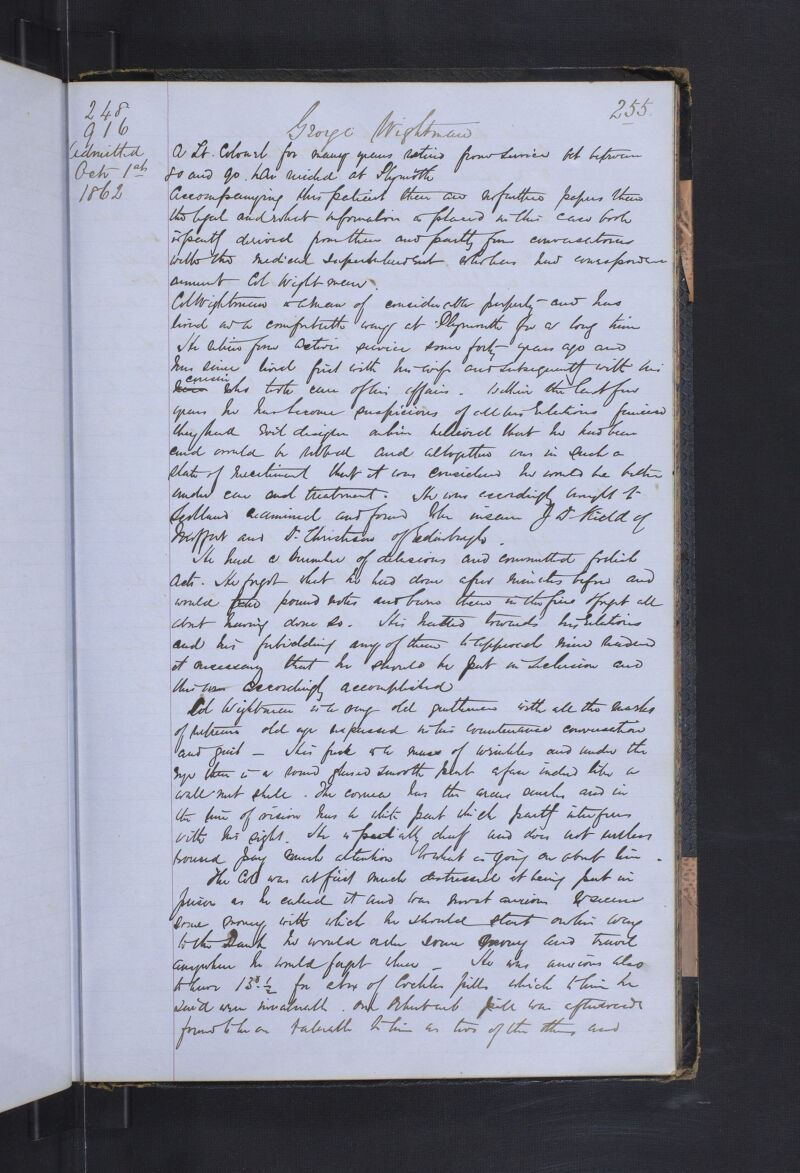 248
916
Admitted
Octr 1st
1862
255.
George Wightman
A Lt. Colonel for many years retired from service aet between
80 and 90. has resided at Plymouth
Accompanying this patient there are no further papers than
the legal and what information is placed in this case book
is partly derived from them and partly from conversations
with the Medical Superintendent who has had correspondence
Col Wightman.
Col Wightman is a man of considerable property and has
lived in a comfortable way at Plymouth for a long time
He retired from active service some forty years ago and
has since lived first with his wife and subsequently with his
cousin who took care of his affairs. Within the last few
years he has become suspicious of all his relations fancied
they had evil designs on him believed that he had been
and would be robbed and altogether was in such a
state of excitement that it was considered he would be better
under care and treatment. He was accordingly brought to
Scotland examined and found to be insane by Dr Kidd of
Moffat and Dr Christison of Edinburgh.
He had a number of delusions and committed foolish
acts. He forgot what he had done a few minutes before and
would pound notes and burn them in the fire & forget all
about having done so. His hatred towards his relations
and his forbidding any of them to approach him rendered
it necessary that he should be put in seclusion and
this was accordingly accomplished
Col Wightman is a very old gentleman with all the marks
of extreme old age expressed in his countenance conversation
and gait - His face is a mass of wrinkles and under the
eye there is a round smooth part a face indeed like a
wall nut shell. The cornea has the arcus senilis and in
the line of vision has a white part which partly interferes
with his sight. He is partially deaf and does not unless
roused pay much attention to what is going on about him.
The Col was at first much distressed at being put in
prison as he called it and was most anxious to secure
some money with which he should start on his way
to the Bank he would order some money and travel
anywhere he would forget where - He was anxious also
to have 13½ for a box of Cockles pills which to him he
said were invaluable. One Rhubarb pill was afterwards
found to be as valuable to him as two of the others and